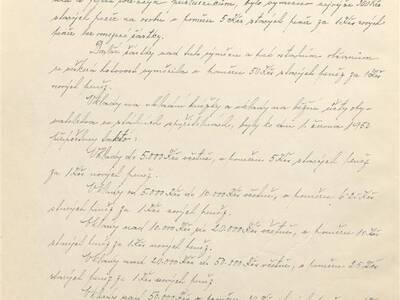 bylo vyměněno nejvýše 300 Kčs
starých peněz na osobu v poměru 5 Kčs starých peněz za 1 Kčs nových
peněz
Další částky nad tuto výměnu a
hotovost vyměnila v poměru 50 Kčs starých peněz za 1 Kčs
nových peněz.
Vklady na vkladní knížky a vklady na běžné účty oby-
vatelstva byly ke dni 1. června 1953
takto:
Vklady do 5.000 Kčs včetně, v poměru 5 Kčs starých peněz
za 1 Kčs nových peněz.
Vklady od 5.000 Kčs do 10.000 Kčs včetně, v poměru 6.25 Kčs
starých peněz za 1 Kčs nových peněz.
Vklady nad 10.000 Kčs do 20.000 Kčs včetně, v poměru 10 Kčs
starých peněz za 1 Kčs nových peněz.
Vklady nad 20.000 Kčs do 50.000 Kčs včetně, v poměru 25 Kčs
starých peněz za 1 Kčs nových peněz.
Vklady nad 50.000 Kčs v poměru